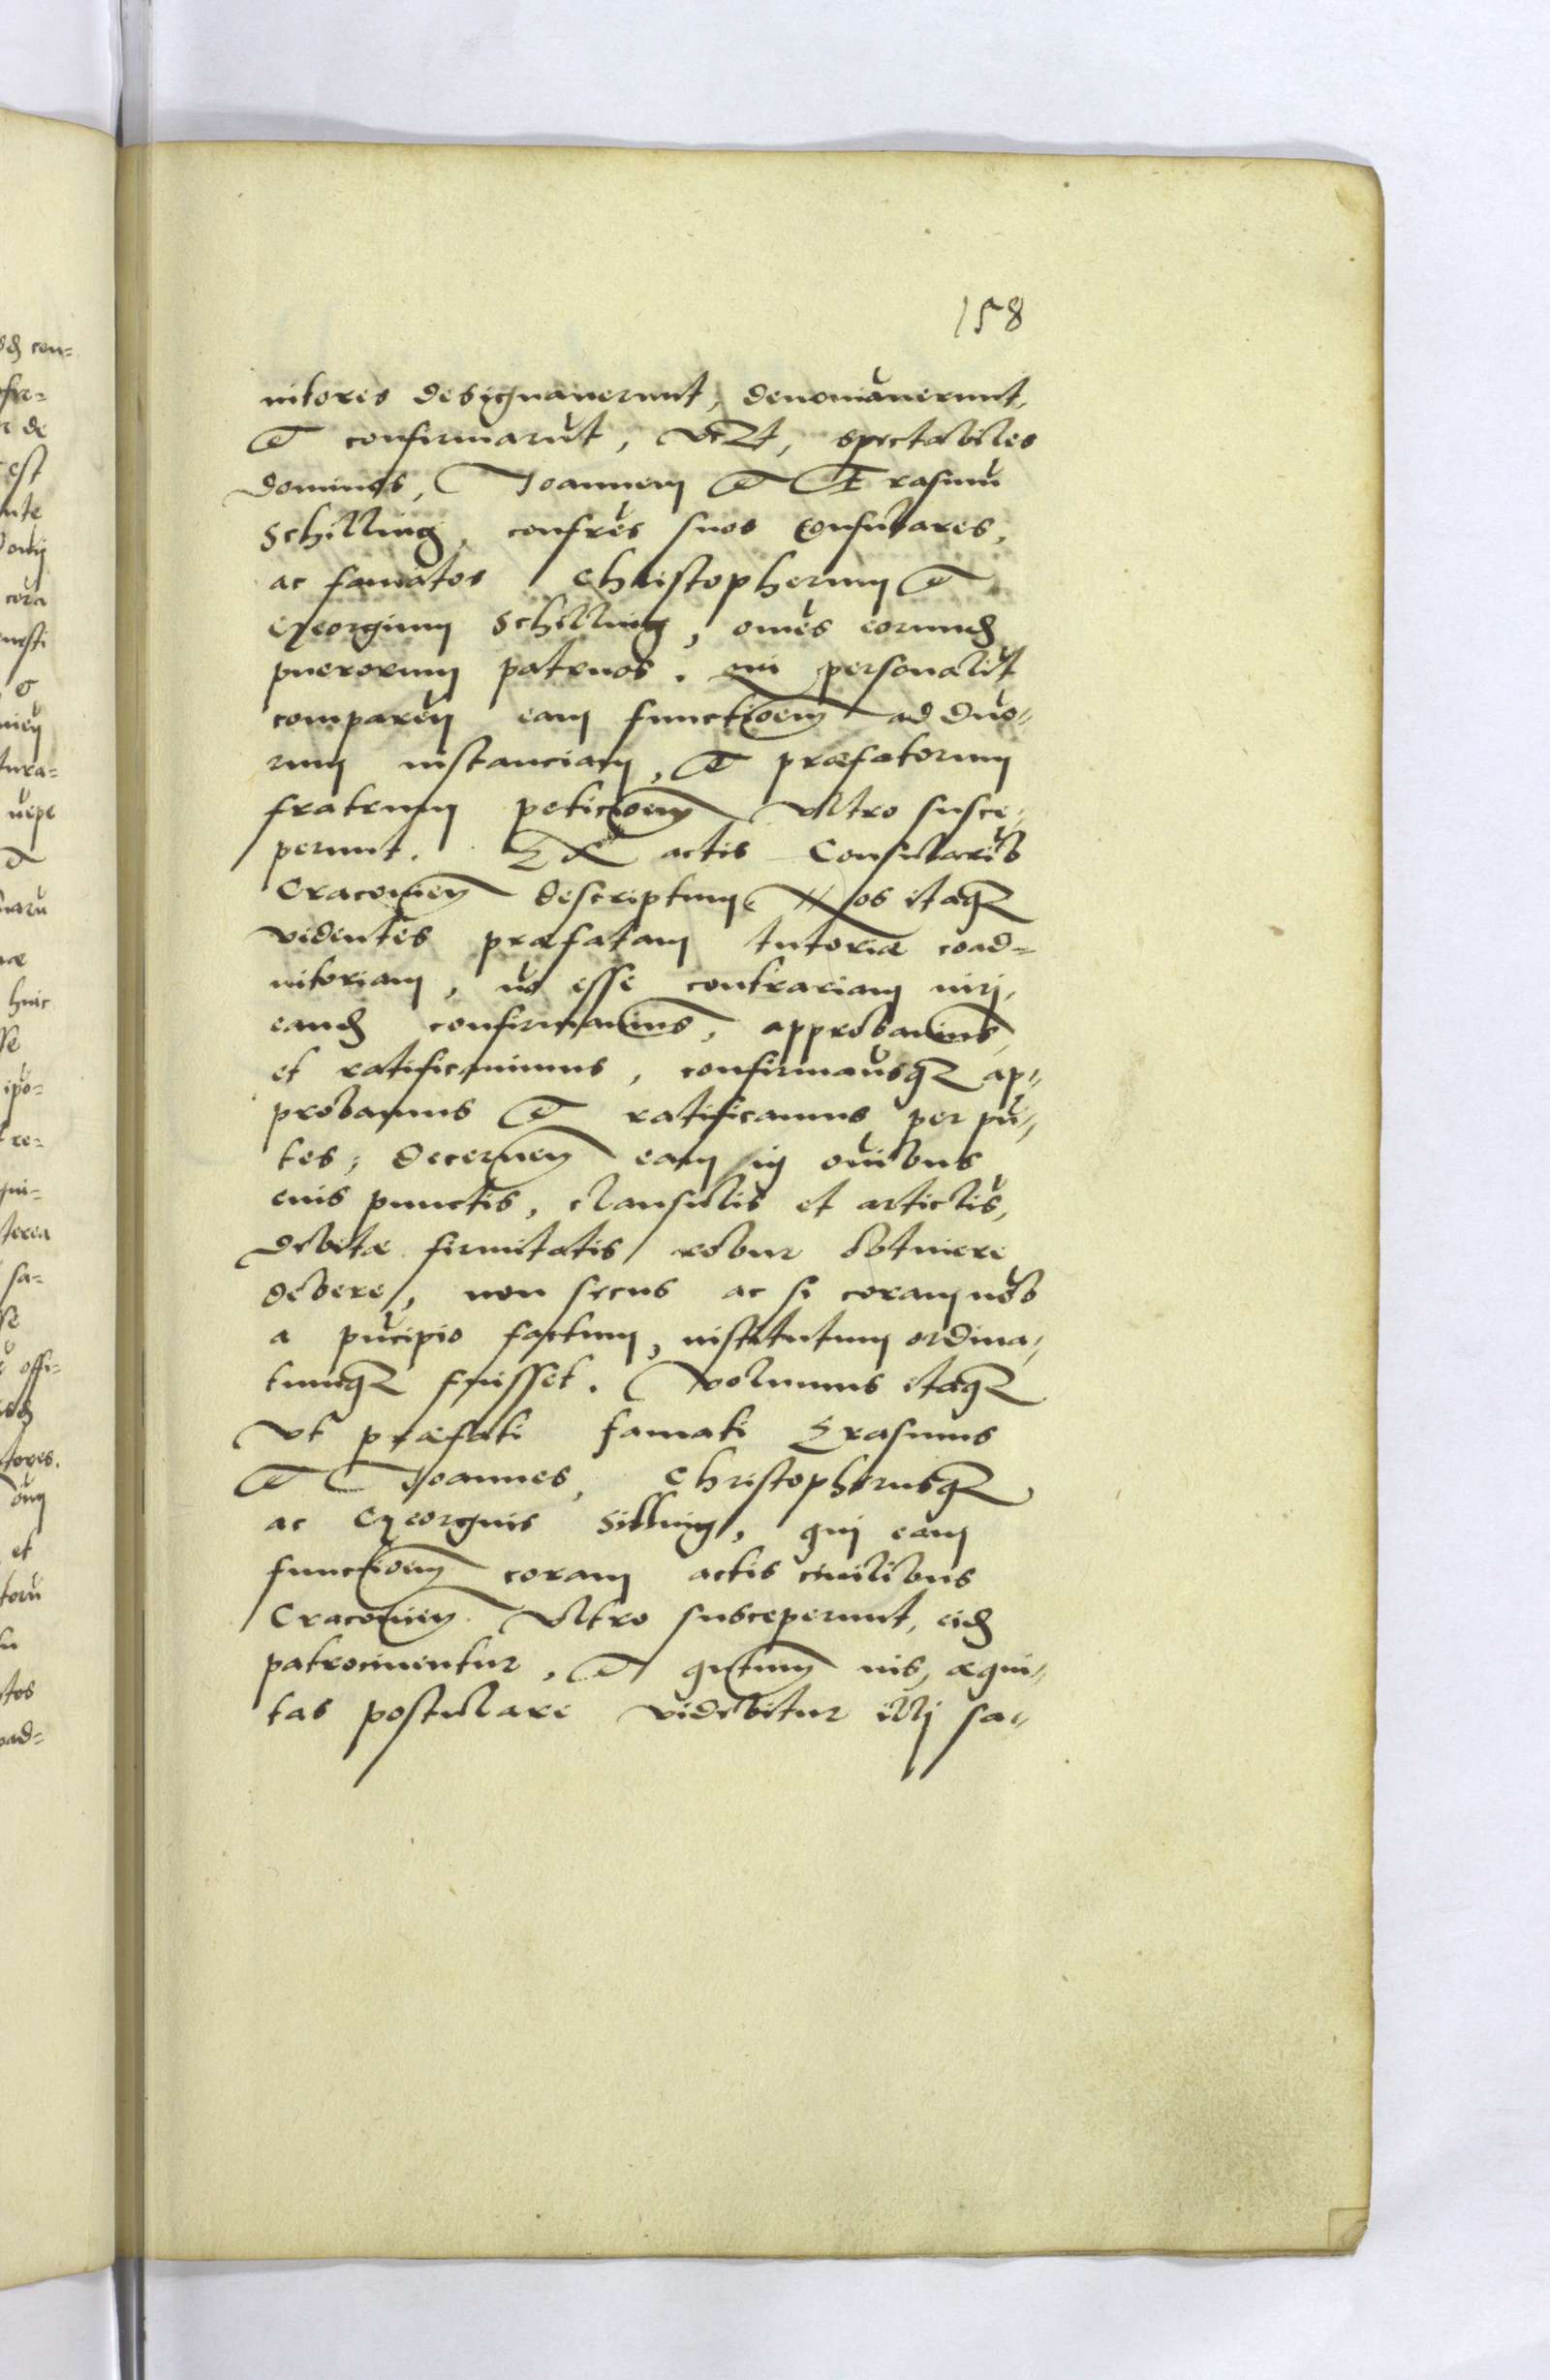 158
uitores designaverunt, denoīaverunt,
et confirmarūt, vczt, spectabiles
dominos, Joannem et Erasmū
Schilling, confrēs suos consulares,
ac famatos Christopherum et
Georgium Schilling, omēs eorund
puerorum patruos. qui personalit̄
comparen eam functioem ad duo-
rum instanciam, et præfatorum
fratrum peticioem ultro susce-
perunt. Ex actis Consularib
Cracovien descriptum. Nos itaq
videntes præfatam tutoriæ coad-
iutoriam, nō esse contrariam iuri,
eand confirmavimus, approbavimus,
et ratificavimus, confirmamusq ap-
probamus et ratificamus per pn̄-
tes, decernen eam in omībus
eius punctis, clausulis et articlis,
debitæ firmitatis robur obtinere
debere, non secus ac si coram nob
a principio factum, institutum ordina-
tumq fuisset. Volumus itaq
vt præfati famati Erasmus
et Joannes, Christopherusq
ac Georgius Silling, qui eam
functionem coram actis civilibus
Cracovien ultro susceperunt, eid
patrocinentur, et qntum ius, æqui-
tas postulare videbitur illi sa-